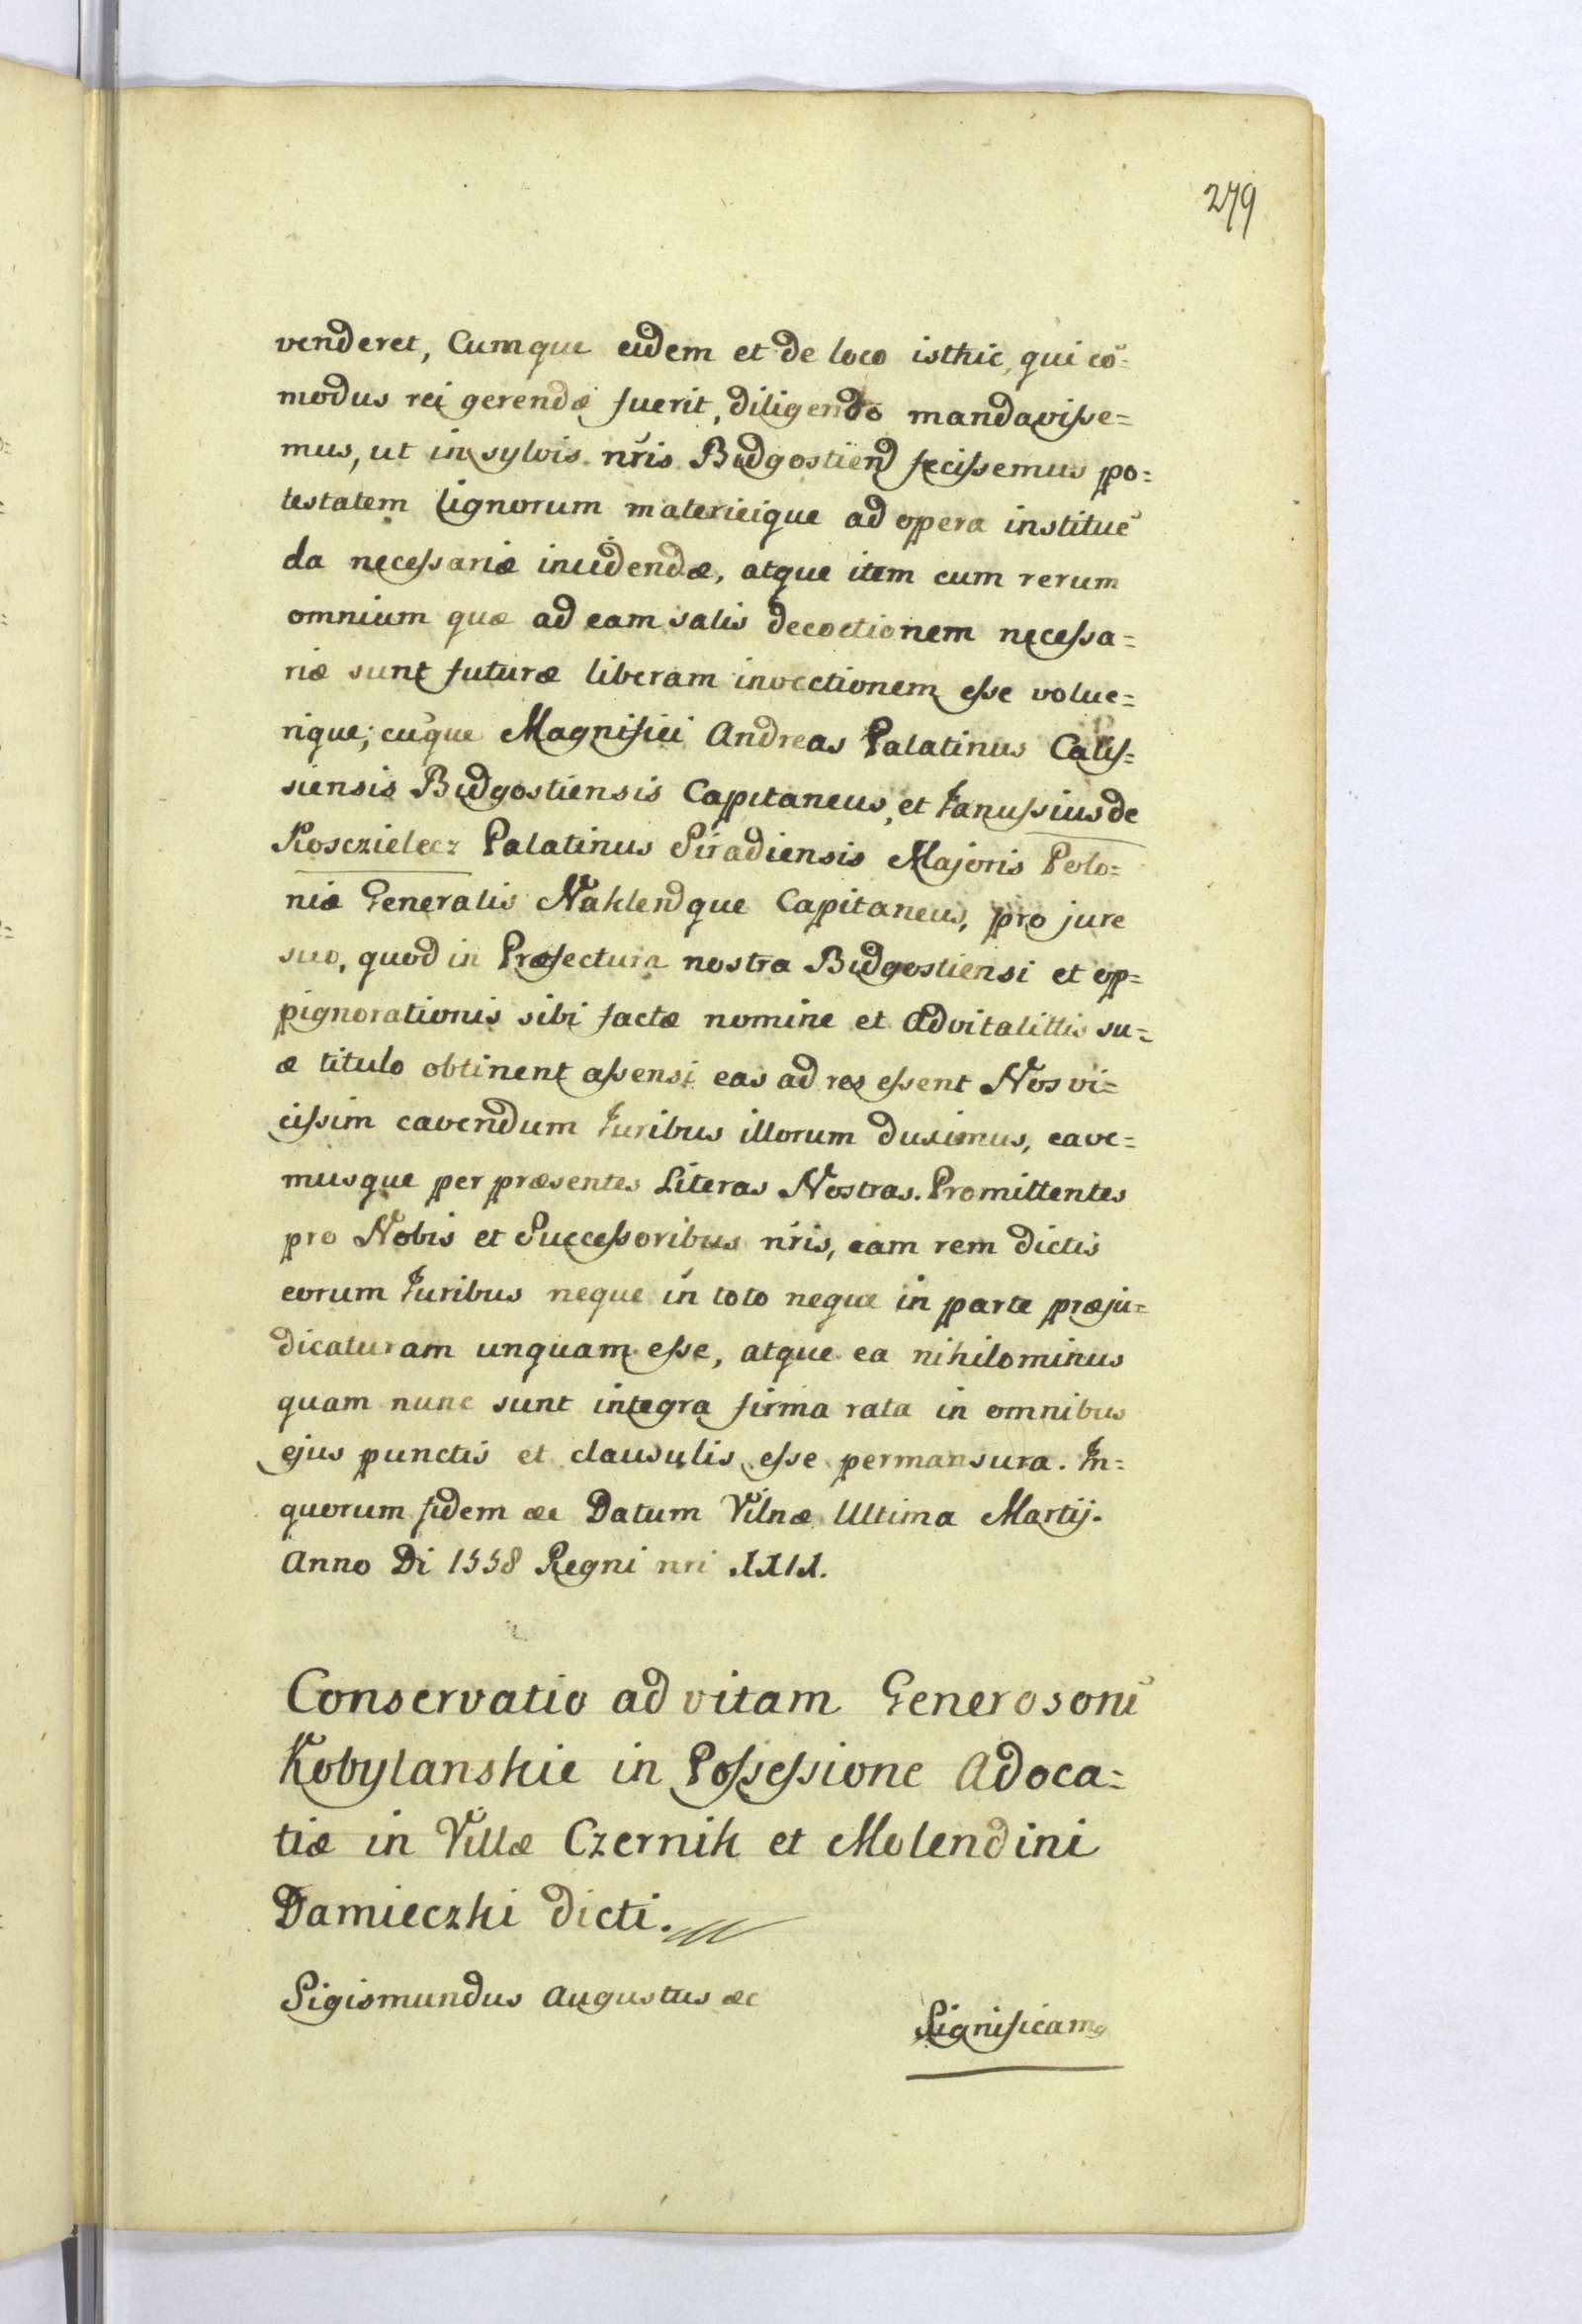 279
venderet, Cumque eidem et de loco isthic, qui cō=
modus rei gerendæ fuerit, diligendo mandavisse=
mus, ut in sylvis nr̃is Bidgostien̄d fecissemus po=
testatem lignorum materieique ad opera instituē
da necessariæ incidendæ, atque item cum rerum
omnium quæ ad eam salis decoctionem necessa=
riæ sunt futuræ liberam invectionem esse volue=
rique; cūque Magnifici Andreas Palatinus Calis=
siensis Bidgostiensis Capitaneus, et Janussius de
Kosczielecz Palatinus Siradiensis Majoris Polo=
niæ Generalis Naklendque Capitaneus, pro jure
suo, quod in Præfectura nostra Bidgostiensi et op=
pignorationis sibi factæ nomine et advitalittis su=
æ titulo obtinent assensi eas ad res essent Nos vi=
cissim cavendum Juribus illorum duximus, cave=
musque per præsentes Literas Nostras. Promittentes
pro Nobis et Successoribus nr̃is, eam rem dictis
eorum Juribus neque in toto neque in parte præju=
dicaturam unquam esse, atque ea nihilominus
quam nunc sunt integra firma rata in omnibus
ejus punctis et clausulis esse permansura. In=
quorum fidem &c Datum Vilnæ Ultima Martij.
Anno Di 1558 Regni nri XXIX.
Conservatio ad vitam Generosorū
Kobylanskie in Possessione Adoca=
tiæ in Villæ Czernik et Molendini
Damieczki dicti.
Sigismundus Augustus &c
Significamq